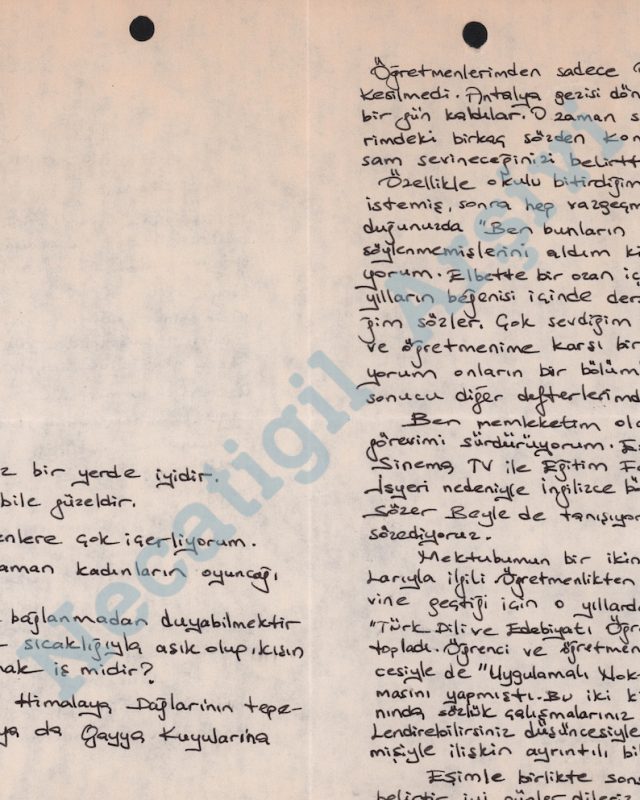 z bir yerde iyidir.
bile güzeldir.
enlere çok içerliyorum.
zaman kadınların oyuncağı
bağlanmadan duyabilmektir
sıcaklığıyla aşık olup, kışın
mak iş midir?
Himalaya Dağlarının tepe-
ya da Gayya Kuyularına
Öğretmenlerimden sadece
Kesilmedi. Antalya gezisi dön
bir gün kaldılar. O zaman s
rimdeki birkaç sözden kon
sam sevineceğinizi belirtt
Özellikle okulu bitirdiğim
istemiş, sonra hep vazgeçm
duğunuzda "Ben bunların
söylenmemişlerini aldım ki
yorum. Elbette bir ozan iç
yılların beğenisi içinde der
ğim sözler. Çok sevdiğim
ve öğretmenime karşı bir
yorum onların bir bölüm
sonucu diğer defterlerimd
Ben memleketim ola
görevimi sürdürüyorum. Es
Sinema TV ile Eğitim Fa
İşyeri nedeniyle İngilizce bö
Sözer Beyle de tanışıyor
sözediyoruz.
Mektubumun bir ikin
larıyla ilgili Öğretmenlikten
vine geçtiği için o yıllard
"Türk Dili ve Edebiyatı Öğre
topladı. Öğrenci ve öğretmen
cesiyle de "Uygulamalı Nok
masını yapmıştı. Bu iki k
nında sözlük çalışmalarınız
lendirebilirsiniz düşüncesiyle
misiyle ilişkin ayrıntılı bil
Eşimle birlikte son
belirtir iyi günler dileriz
Necatigil Arşivi